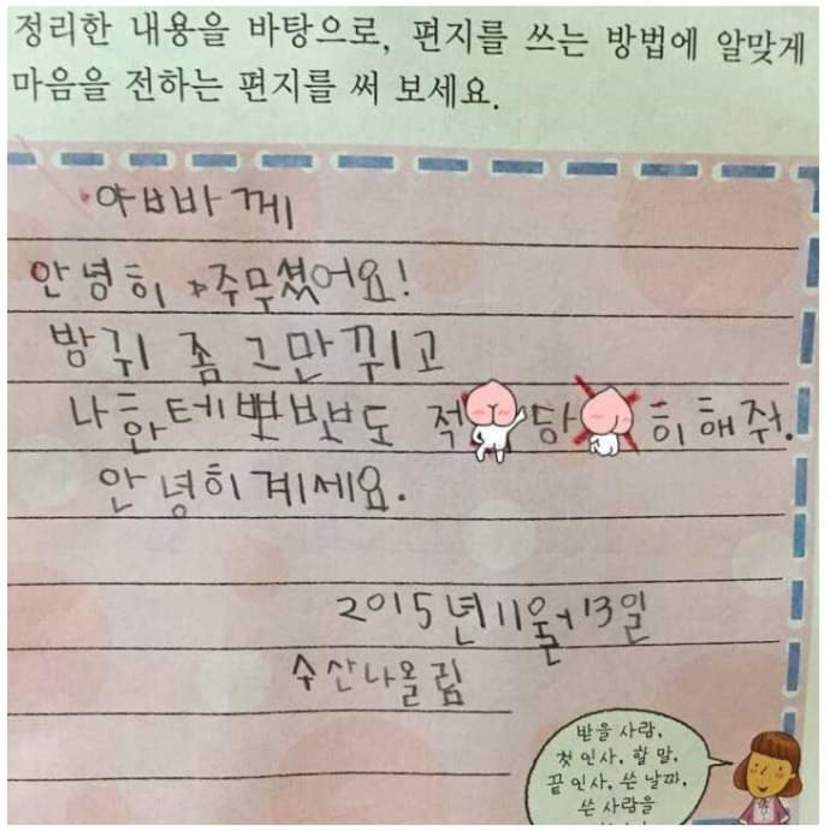 정리한 내용을 바탕으로, 편지를 쓰는 방법에 알맞게
마음을 전하는 편지를 써 보세요.
아빠바께
안녕히 주무셨어요!
방귀 좀 그만 뀌고
나한테 뽀뽀도 적당히 해줘.
안녕히계세요.
2015년 11월 13일
수산나올림
받을 사람,
첫 인사, 할 말,
끝 인사, 쓴 날짜,
쓴 사람을